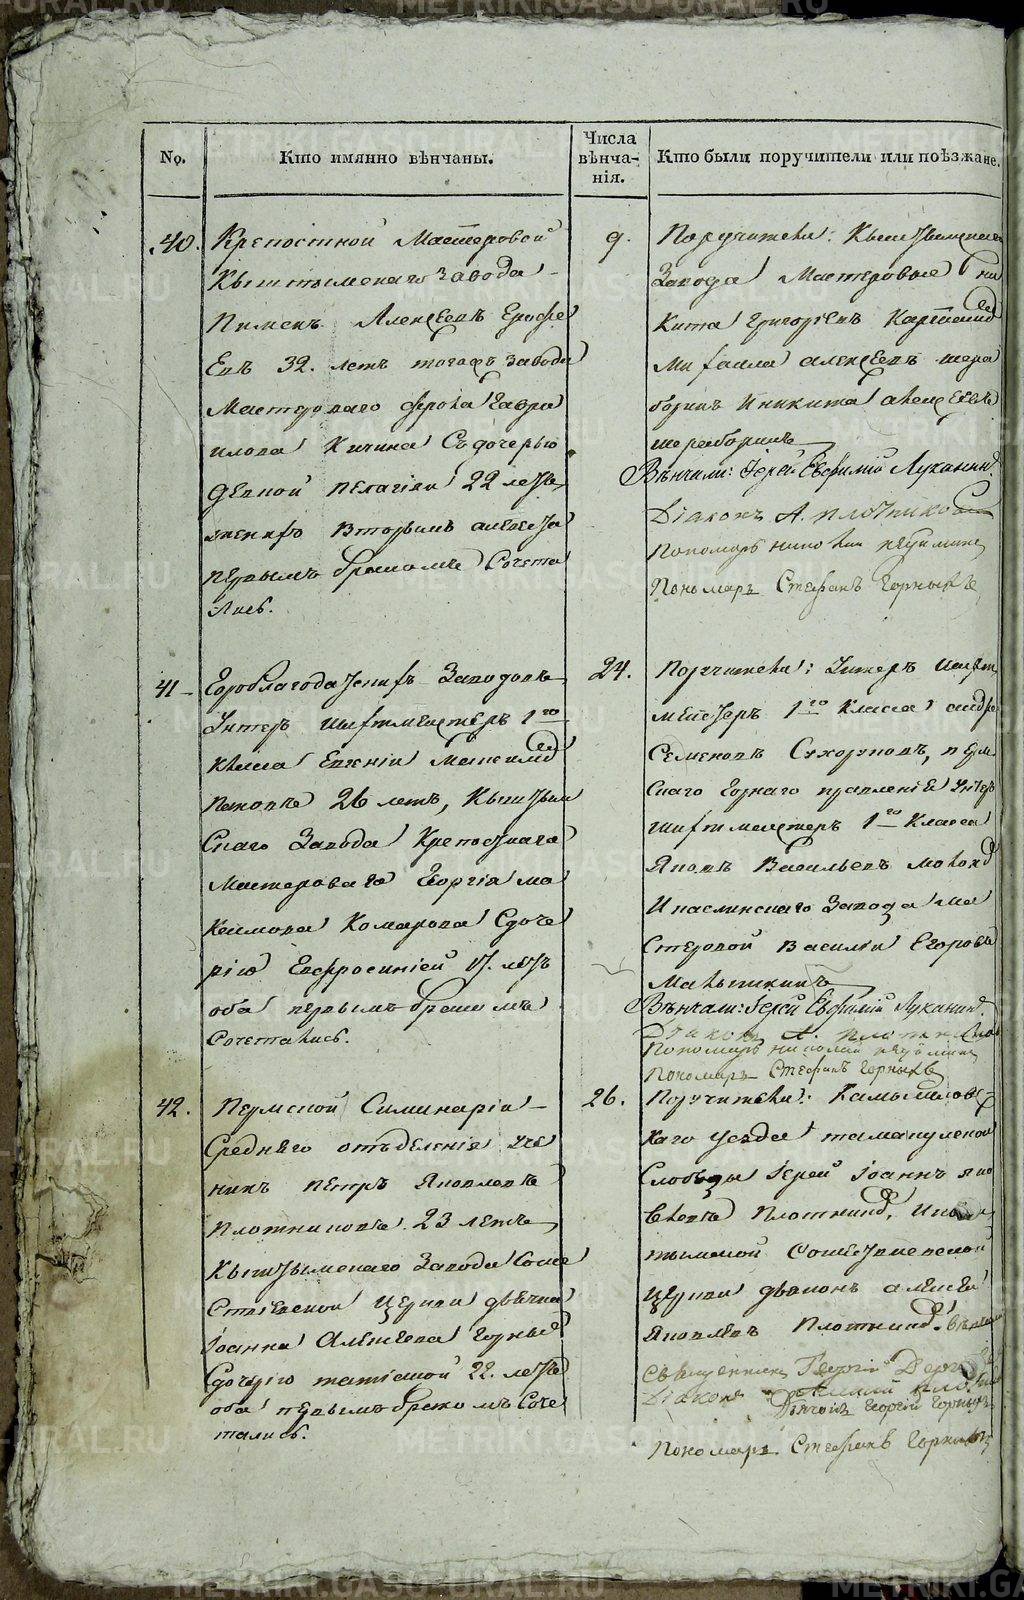 №.
Кто имянно вѣнчаны.
Числа
вѣнча-
нія.
Кто были поручители или поѣзжане.
40.
Крепостной Мастеровой
Кыштымскаго Завода
Пименъ Алексеевъ Ерофе
евъ 32. летъ тогожъ завода
Мастероваго Фрола Гаври
лова Кичина Съ дочерью
девкой Пелагіей 22 летъ,
женихъ вторымъ а невеста
первымъ бракомъ Сочета
лись.
9.
Поручители: Кыштымскаго
Завода Мастеровые Ни
кита Григорьевъ
Михаила Алексеевъ Щера
боринъ И Никита Алексеевъ
Щераборинъ
Вѣнчали: Іерей Евфимій Луканинъ
Діаконъ А. Плотниковъ
Пономарь Николай
Пономарь Стефанъ Горныхъ
41
Гороблагодатскихъ Заводовъ
Унтеръ Шихтмейстеръ 1го
класса Евгеній
26 летъ, Кыштым
скаго Завода Крепостнаго
Мастероваго Георгія Ма
ксимова Комарова Сдоче
рію Евфросиніей 17. летъ
оба первымъ бракомъ
Сочетались.
24.
Поручители: Унтеръ Шихт
мейстеръ 1го Класса Андре
Семеновъ Сухоруковъ, Перм
скаго Горнаго правленія Унтеръ
шихтмейстеръ 1го Класса
Яковъ Васильевъ
И Каслинскаго Завода Ма
стеровой Василий Егоровъ
Вѣнчали: Іерей Евфимій Луканинъ.
Діаконъ А. Плотниковъ
Пономарь Николай
Пономарь Стефанъ Горныхъ
42.
Пермской Симинаріи
Средняго отъделенія уче
никъ Петръ Яковлевъ
Плотниковъ 23 летъ
Кыштымскаго Завода Соше
ствіевской Церкви дьячка
Іоанна Алексеева Горныхъ
Сдочерію Татіаной 22. летъ
оба первымъ бракомъ Соче
тались.
26.
Поручители: Камышловс
каго уезда Тамакульской
Слободы Іерей Іоаннъ Яко
влевъ Плотниковъ, И Кыш
тымской Сошествіевской
Церкви дьяконъ Алексей
Яковлевъ Плотниковъ. Вѣнчали
Священникъ Георгій
Діаконъ Алексій Плотник
Дьячокъ Георгій Горныхъ
Пономарь Стефанъ Горныхъ
METRIKI.GASO-URAL.RU